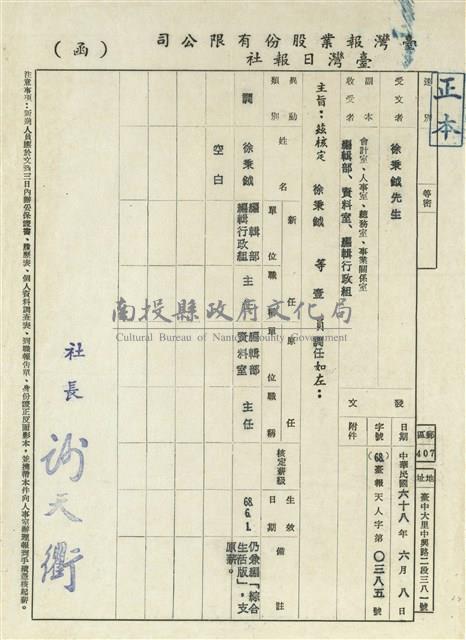 臺灣報業股份有限公司
臺灣日報社
（函）
正本
速別
等密
郵區
407
地址
臺中大里中興路二段三八一號
受文者
徐秉鉞先生
副本收受者
會計室、人事室、總務室、事業關係室
編輯部、資料室、編輯行政組
發文
日期
中華民國六十八年六月八日
字號
(68)臺報天人字第〇三八五號
附件
主旨：茲核定 徐秉鉞 等壹員調任如左：
異動類別
姓名
新任
單位
職稱
原任
單位
職稱
核定薪級
生效日期
備註
調
徐秉鉞
編輯部
編輯行政組
主任
編輯部
資料室
主任
68.6.1.
仍兼編「綜合
生活版」，支
原薪。
空白
社長 謝天衢
注意事項：新聘人員應於文到三日內辦妥保證書、履歷表、個人資料調查表、到職報告單、身份證正反面影本，並攜帶本件向人事室辦理報到手續憑核起薪。
南投縣政府文化局
Cultural Bureau of Nantou County Government